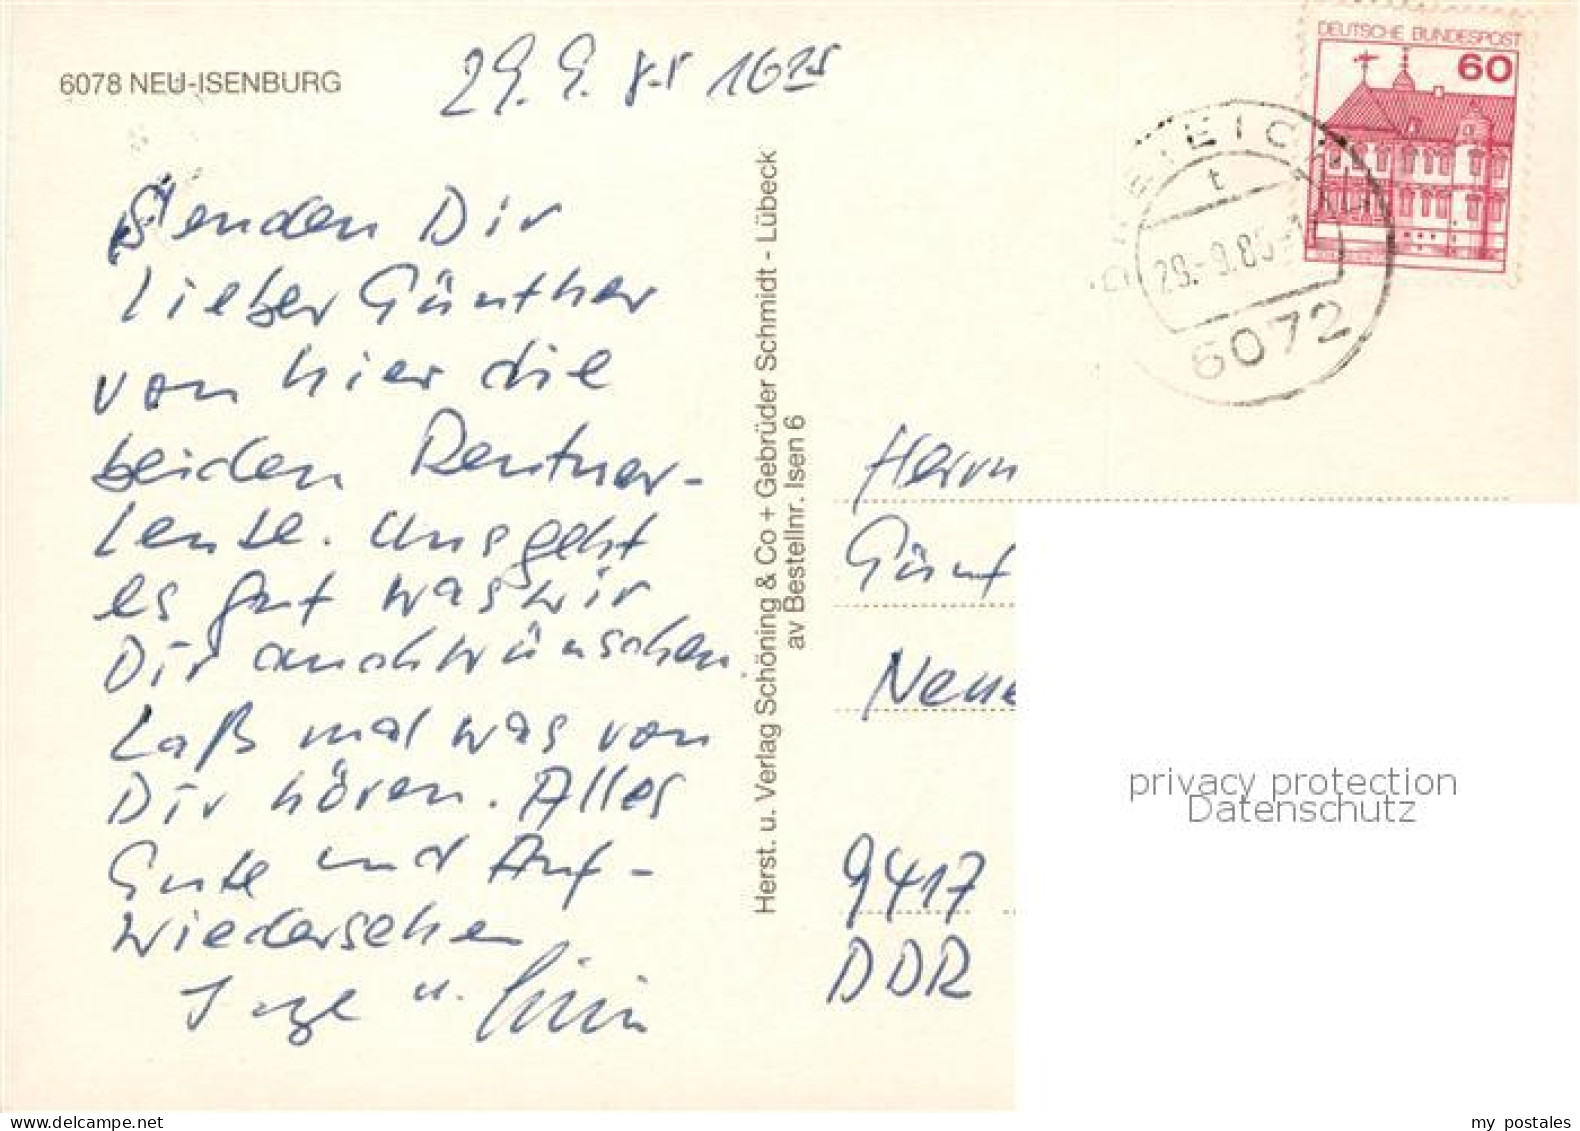 6078 NEU-ISENBURG
29. 9. 85 16 25
Senden Dir
Lieber Günther
von hier die
beiden Rentner-
leute. Uns geht
es gut was wir
Dir auch wünschen
Laß mal was von
Dir hören. Alles
Gute und Auf-
wiedersehen
Inge u.
Herst. u. Verlag Schöning & Co + Gebrüder Schmidt - Lübeck
av Bestellnr. Isen 6
DEUTSCHE BUNDESPOST
60
t
29.-9.85-
6072
Herrn
Günt
Neue
9417
DDR
privacy protection
Datenschutz
my postales